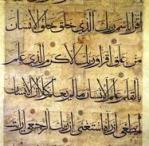 اقرأ باسم ربك الذي خلق خلق الإنسان
من علق اقرأ وربك الأكرم الذي علم
بالقلم علم الإنسان ما لم يعلم كلا إن الإنسان
ليطغى أن رآه استغنى إن إلى ربك الرجعى أرأيت